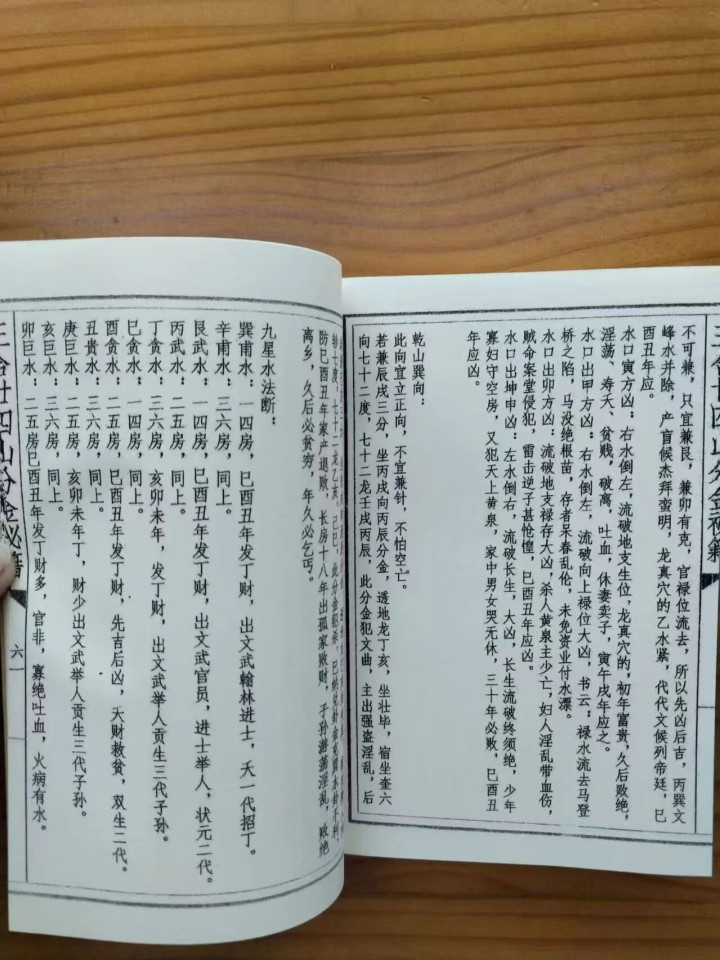 三合廿四山分金秘籍
不可兼，只宜兼艮，兼卯有克，官禄位流去，所以先凶后吉，丙巽文
峰水并除，产盲候杰拜蛮明，龙真穴的乙水紧，代代文候列帝廷，巳
酉丑年应。
水口寅方凶：右水倒左，流破地支生位，龙真穴的，初年富贵，久后败绝，
淫荡、寿夭、贫贱，破离，吐血，休妻卖子，寅午戌年应之。
水口出甲方凶：右水倒左，流破向上禄位大凶，书云：禄水流去马登
桥之陷，马没绝根苗，存者呆春乱伦，未免资业付水漂。
水口出卯方凶：流破地支禄存大凶，杀人黄泉主少亡，妇人淫乱带血伤，
贼命案堂侵犯，雷击逆子甚怆惶，巳酉丑年应凶。
水口出坤申凶：左水倒右，流破长生，大凶，长生流破终须绝，少年
寡妇守空房，又犯天上黄泉，家中男女哭无休，三十年必败，巳酉丑
年应凶。
乾山巽向：
此向宜立正向，不宜兼针，不怕空亡。
若兼辰戌三分，坐丙戌向丙辰分金，透地龙丁亥，坐壮毕，宿坐奎六
向七十二度，七十二龙壬戌丙辰，此分金犯文曲，主出强盗淫乱，后
防巳酉丑年家产退败，长房十八年出孤家败财，子孙游荡淫乱，败绝
离乡，久后必贫穷，年久必乞丐。
九星水法断：
巽甫水：一四房，巳酉丑年发丁财，出文武翰林进士，夭一代招丁。
辛甫水：三六房，同上。
艮武水：一四房，巳酉丑年发丁财，出文武官员，进士举人，状元二代。
丙武水：三六房，同上。
丁贪水：三六房，亥卯未年，发丁财，出文武举人贡生三代子孙。
巳贪水：三六房，同上。
酉贪水：二五房，巳酉丑年发丁财，先吉后凶，天财救贫，双生二代。
丑贵水：三六房，同上。
庚巨水：二五房，亥卯未年丁，财少出文武举人贡生三代子孙。
亥巨水：三六房，同上。
卯巨水：二五房巳酉丑年发丁财多，官非，寡绝吐血，火病有水。
三合廿四山分金秘籍
六一